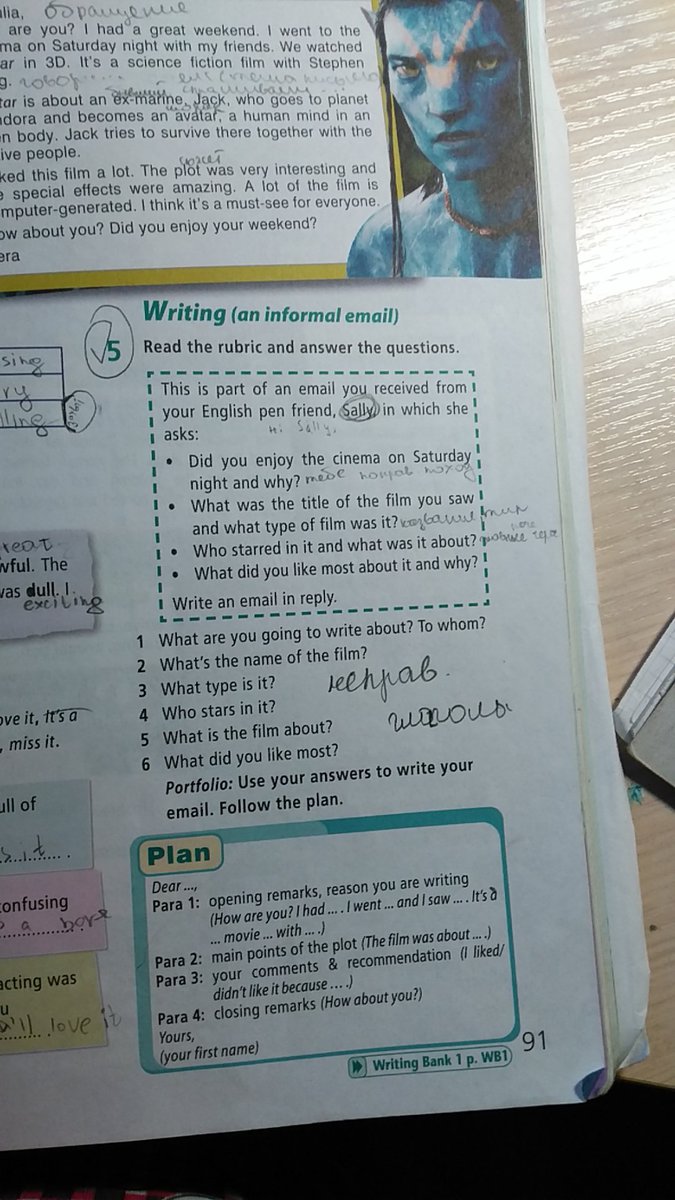 lia, обращение
are you? I had a great weekend. I went to the
ma on Saturday night with my friends. We watched
ar in 3D. It's a science fiction film with Stephen
g.
tar is about an ex-marine, Jack, who goes to planet
ndora and becomes an avatar, a human mind in an
n body. Jack tries to survive there together with the
ive people.
сюжет
ked this film a lot. The plot was very interesting and
e special effects were amazing. A lot of the film is
mputer-generated. I think it's a must-see for everyone.
ow about you? Did you enjoy your weekend?
era
Writing (an informal email)
5 Read the rubric and answer the questions.
This is part of an email you received from
your English pen friend, Sally, in which she
asks:
Hi Sally,
• Did you enjoy the cinema on Saturday
night and why? тебе понрав поход
• What was the title of the film you saw
and what type of film was it? название тип
• Who starred in it and what was it about?
• What did you like most about it and why?
Write an email in reply.
1 What are you going to write about? To whom?
2 What's the name of the film?
3 What type is it?
4 Who stars in it?
5 What is the film about?
6 What did you like most?
неправ.
глаголы
Portfolio: Use your answers to write your
email. Follow the plan.
Plan
Dear ...,
Para 1: opening remarks, reason you are writing
(How are you? I had ... . I went ... and I saw ... . It's a
... movie ... with ... .)
Para 2: main points of the plot (The film was about ... .)
Para 3: your comments & recommendation (I liked/
didn't like it because ... .)
Para 4: closing remarks (How about you?)
Yours,
(your first name)
Writing Bank 1 p. WB1
91
sing
ry
lling
reat
wful. The
was dull. I
exciting
ove it, It's a
, miss it.
ull of
s it
confusing
a bore
acting was
u
'll love it